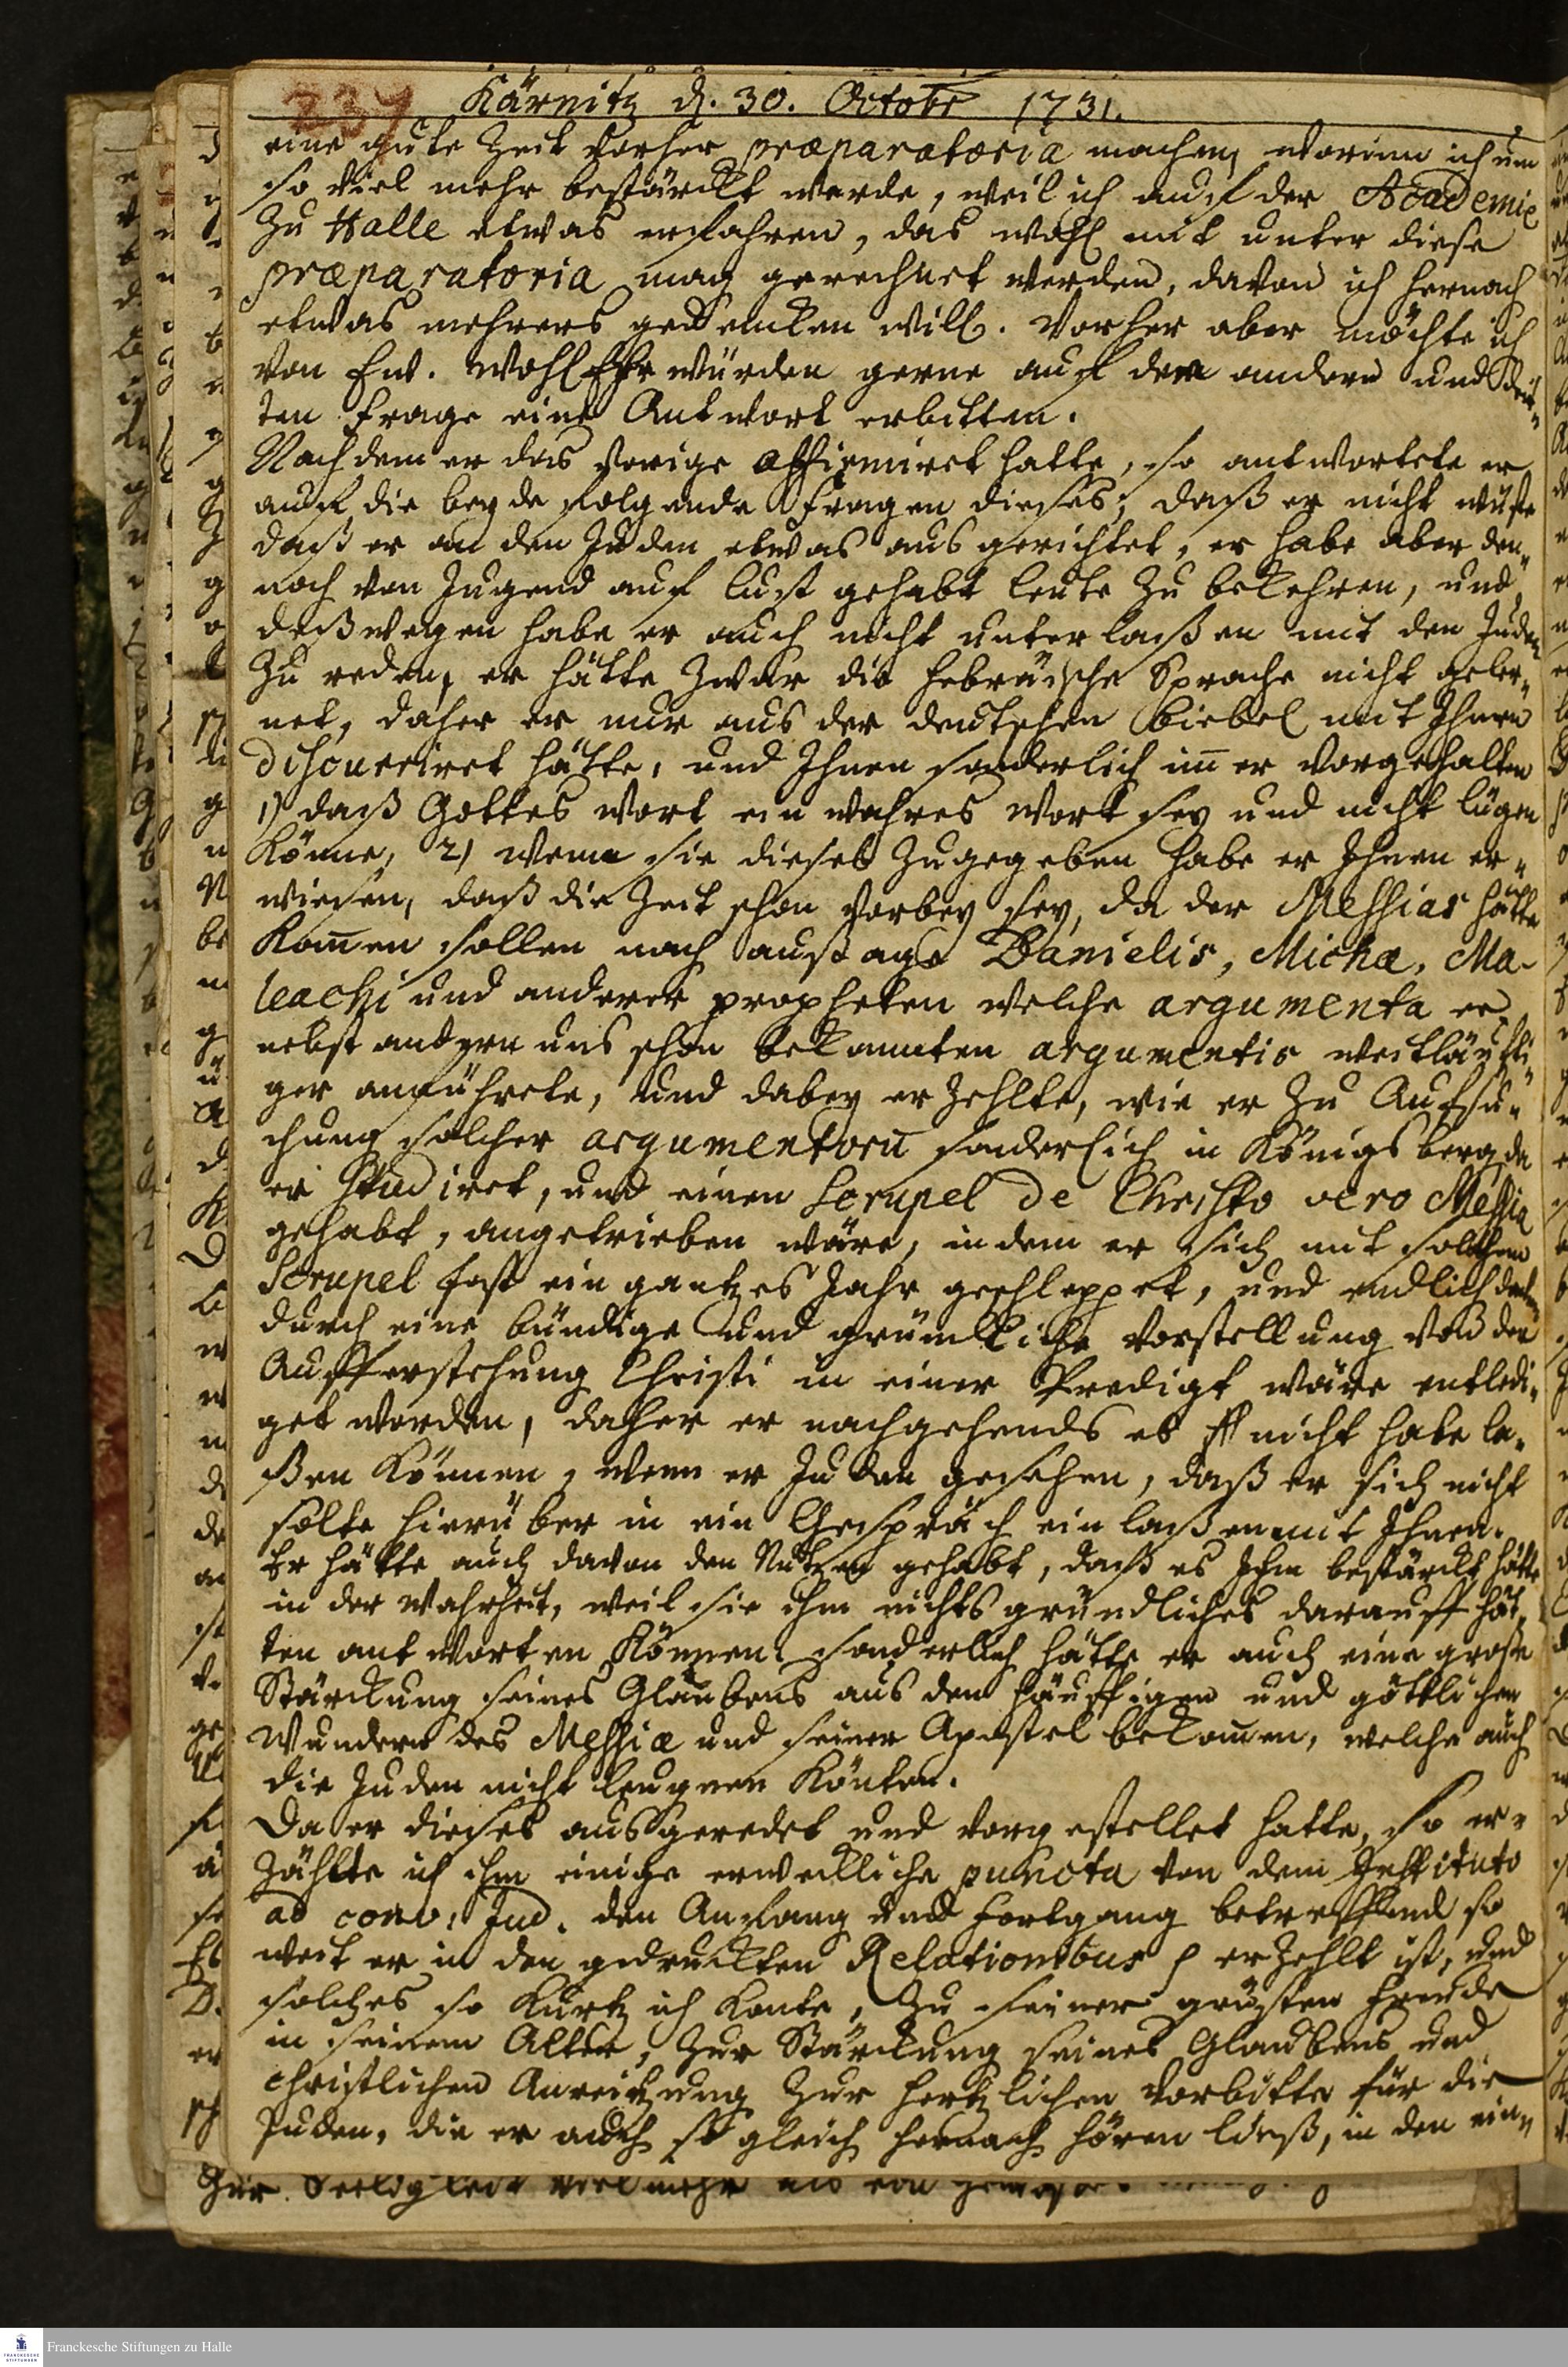 237 Kärnitz d. 30. Octobr 1731.
eine gute Zeit vorher præparatoria machen, worinn ich um
so viel mehr bestärckt werde, weil ich auf der Academie
Zu Halle etwas erfahren, das wohl mit unter diese
præparatoria mag gerechnet werden, davon ich hernach
etwas mehrers gedencken will. Vorher aber möchte ich
von Ew. WohlEhrwürden gerne auf der andern und drit-
ten Frage eine Antwort erbitten.
Nachdem er das vorige affirmiret hatte, so antwortete er
auf die beyde folgende Fragen dieses; daß er nicht wüste
daß er an den Juden etwas ausgerichtet, er habe aber den-
noch von Jugend auf lust gehabt leute Zu bekehren, und
deßwegen habe er auch nicht unterlaßen mit den Juden
Zu reden, er hätte Zwar die hebräische Sprache nicht geler-
net, daher er nur aus der deutschen biebel mit Ihnen
discurriret hätte, und Ihnen sonderlich im̄er vorgehalten
1) daß Gottes wort ein wahres wort sey und nicht lügen
Könne, 2) wenn sie dieses Zugegeben habe er Ihnen er-
wiesen, daß die Zeit schon vorbey sey, da der Messias hätte
Kom̄en sollen nach außage Danielis, Michæ, Ma-
leachi und anderer propheten welche argumenta er
nebst andern uns schon bekannten argumentis weitläufti-
ger anführete, und dabey erZehlte, wie er Zu Aufsu-
chung solcher argumentorū sonderlich in Königsberg, da
er studiret, und einen Scrupel de Christo vero Messia
gehabt, angetrieben wäre, indem er sich mit solchem
Scrupel fast ein gantzes Jahr geschleppet, und endlich
durch eine bündige und gründliche Vorstellung von der
Aufferstehung Christi in einer Predigt wäre entledi-
get worden, daher er nachgehends es nicht habe la-
ßen Können, wenn er Juden gesehen, daß er sich nicht
solte hierüber in ein Gespräch einlaßen mit Ihnen.
Er hätte auch davon den Nutzen gehabt, daß es Ihm bestärckt hätte
in der Wahrheit, weil sie ihm nichts gründliches darauff hät-
ten antworten Können. sonderlich hätte er auch eine große
Stärckung seines Glaubens aus den häuffigen und göttlichen
Wundern des Messiæ und seiner Apostel bekom̄en, welche auch
die Juden nicht leugnen Könten.
Da er dieses ausgeredet und vorgestellet hatte, so er-
Zählte ich ihm einige erweckliche puncta von dem Instituto
ad conv: Jud. den Anfang und Fortgang betreffend so
weit er in den gedruckten Relationibus p erZehlt ist, und
solches so Kurtz ich Konte, Zu seiner grösten Freude
in seinem Alter, Zur Stärckung seines Glaubens und
christlichen Anreitzung Zur hertzlichen Vorbitte für die
Juden, die er auch so gleich hernach hören ließ, in den ein-
Zur Seeligkeit viel mehr als
Franckesche Stiftungen zu Halle